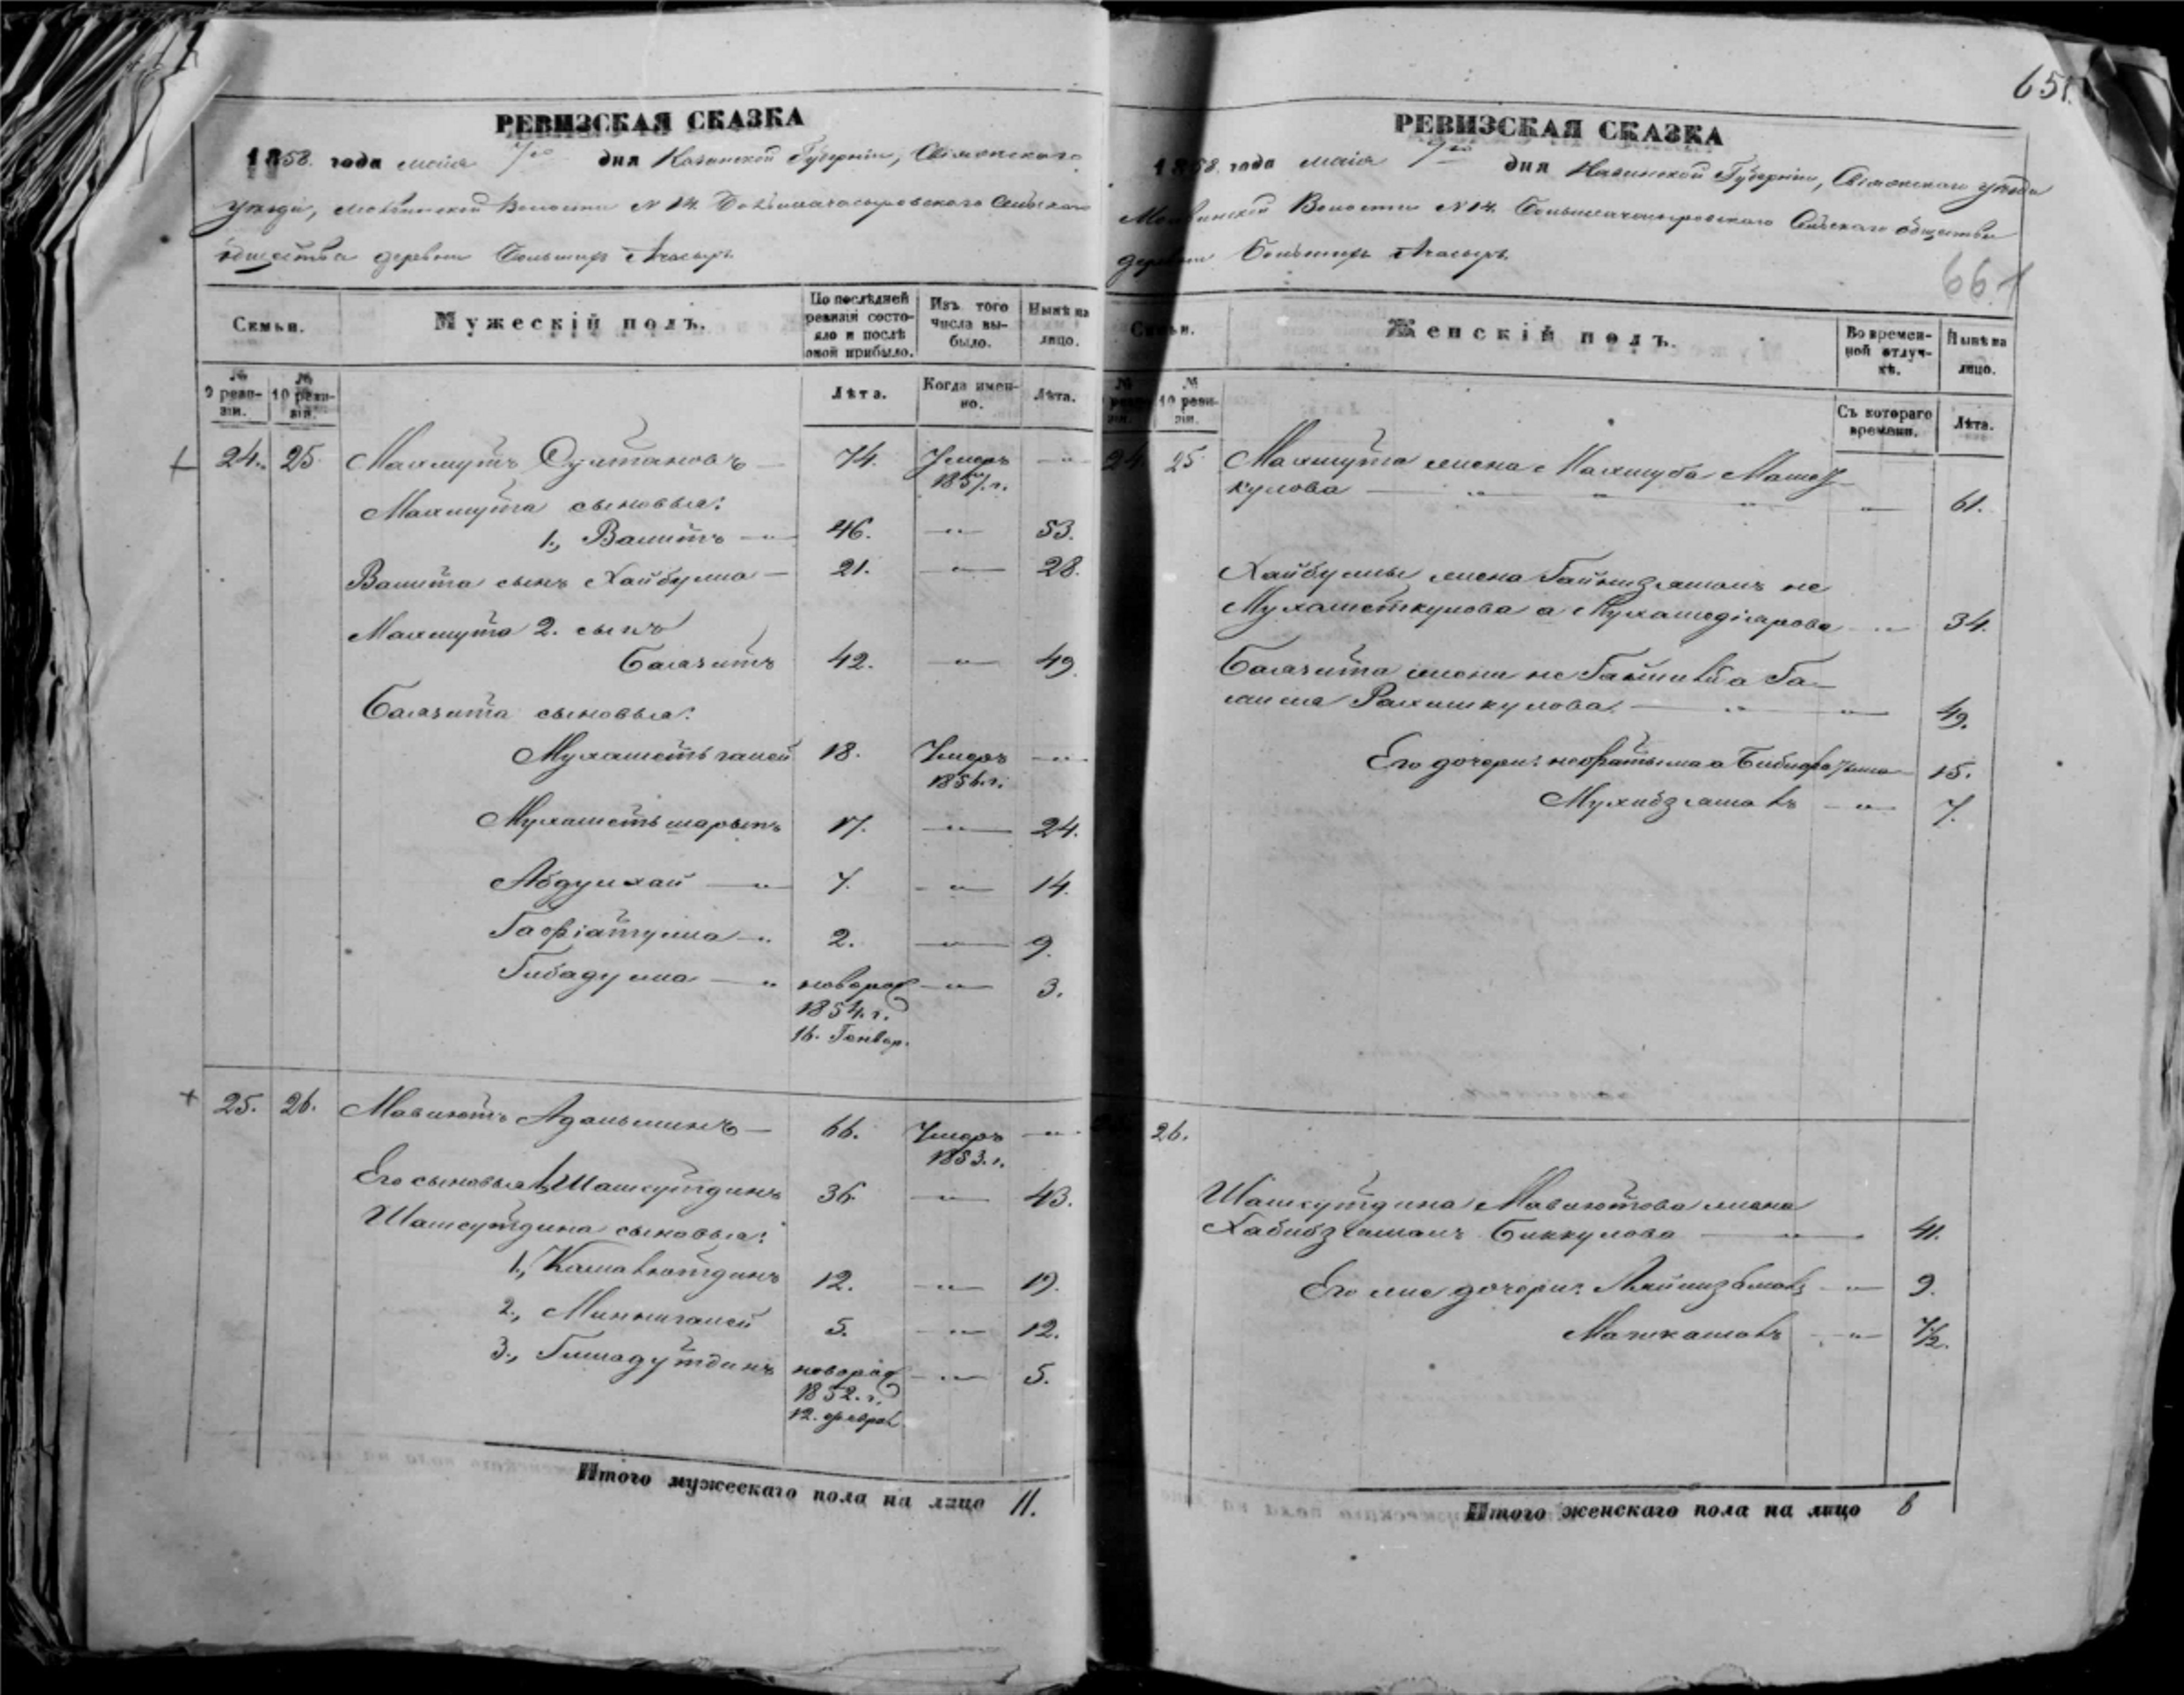 РЕВИЗСКАЯ СКАЗКА
1858. года маія 7го дня Казанской Губерніи, Свіяжскаго
уѣзда, Молвинской Волости N 14. Большеачасыровскаго Сельскаго
общества деревни Большихъ Ачасыръ
Семьи.
Мужескій полъ.
По послѣдней ревизіи состояло и послѣ оной прибыло.
Изъ того числа выбыло.
Нынѣ на лицо.
№ 9 ревизіи.
№ 10 ревизіи.
Лѣта.
Когда именно.
Лѣта.
24. 25. Махмутъ Султановъ — 74. Умеръ 1857. г. — "
Махмута сыновья:
1., Валитъ — " 46. — " 53.
Валита сынъ Хайбулла — 21. — " 28.
Махмута 2. сынъ
Баязитъ 42. — " 49.
Баязита сыновья:
Мухаметьгалей 18. Умеръ 1856. г. — "
Мухаметьшарыпъ 17. — " 24.
Абдулхай — " 7. — " 14.
Гафіатулла — " 2. — " 9.
Гибадулла — " новорож 1854. г. 16. Генвар. — " 3.
25. 26. Мавлютъ Адельшинъ — 66. Умеръ 1853. г. — "
Его сыновья 1, Шамсутдинъ 36. — " 43.
Шамсутдина сыновья:
1., Камалютдинъ 12. — " 19.
2., Миннигалей 5. — " 12.
3., Гимадутдинъ новорож 1852. г. 12. феврал. — " 5.
Итого мужескаго пола на лицо 11.
651.
РЕВИЗСКАЯ СКАЗКА
1858. года маія 7го дня Казанской Губерніи, Свіяжскаго уѣзда
Молвинской Волости N 14. Большеачасыровскаго Сельскаго общества
деревни Большихъ Ачасыръ.
66.
Семьи.
Женскій полъ.
Во временной отлучкѣ.
Нынѣ на лицо.
№ 9 ревизіи.
№ 10 ревизіи.
Съ котораго времени.
Лѣта.
24 25. Махмута жена Махшуба
кулова — " " " — " 61.
Хайбуллы жена Гайнизямалъ не
Мухаметкулова а Мухамедіярова — " 34.
Баязита жена не а Га-
Рахманкулова. — " — " 49.
Его дочери: неФатыма а Бибифатыма 15.
Мухибзямалъ — " 7.
26.
Шамсутдина Мавлютова жена
Хабибзямалъ Биккулова — " 41.
Его же дочери: — " 9.
— " 1/2.
Итого женскаго пола на лицо 8